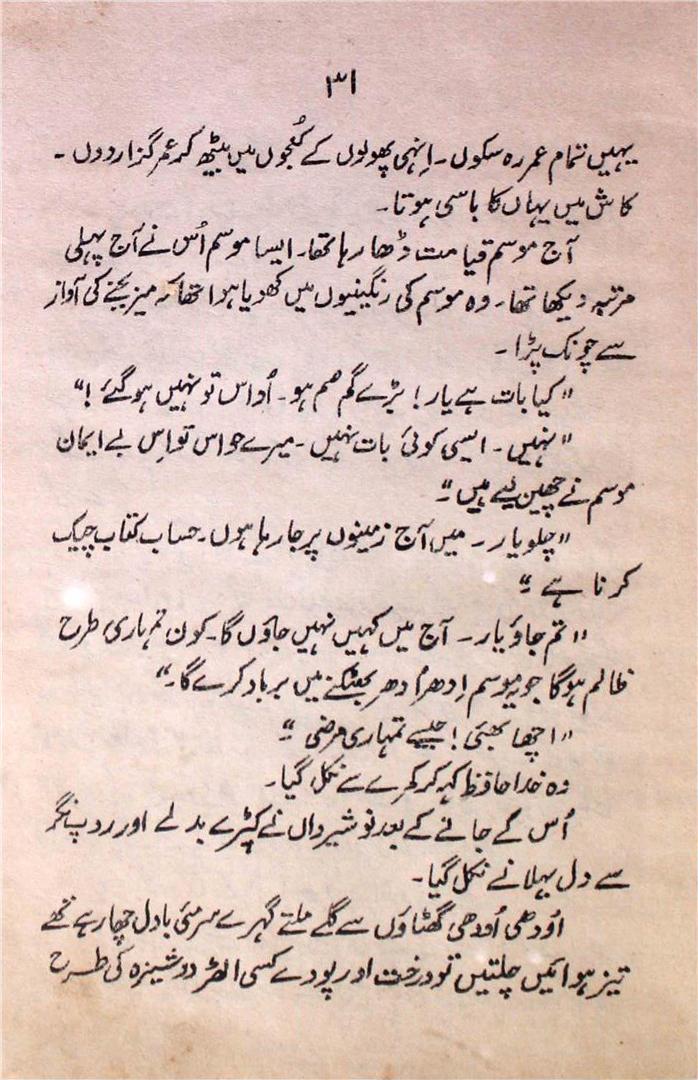 ۳۱
یہیں تمام عمر رہ سکوں۔ اِنہی پھولوں کے کُنجوں میں بیٹھ کر عمر گزار دوں۔
کاش میں یہاں کا باسی ہوتا۔
آج موسم قیامت ڈھا رہا تھا۔ ایسا موسم اُس نے آج پہلی
مرتبہ دیکھا تھا۔ وہ موسم کی رنگینیوں میں کھویا ہوا تھا کہ میز بجنے کی آواز
سے چونک پڑا۔
"کیا بات ہے یار! بڑے گم صم ہو۔ اُداس تو نہیں ہو گئے!"
"نہیں۔ ایسی کوئی بات نہیں۔ میرے حواس تو اِس بے ایمان
موسم نے چھین لیے ہیں۔"
"چلو یار۔ میں آج زمینوں پر جا رہا ہوں۔ حساب کتاب چیک
کرنا ہے۔"
"تم جاؤ یار۔ آج میں کہیں نہیں جاؤں گا۔ کون تمہاری طرح
ظالم ہوگا جو یہ موسم اِدھر اُدھر بھٹکنے میں برباد کرے گا۔"
"اچھا بھئی! جیسے تمہاری مرضی۔"
وہ خدا حافظ کہہ کر کمرے سے نکل گیا۔
اُس کے جانے کے بعد نوشیرواں نے کپڑے بدلے اور روپ نگر
سے دل بہلانے نکل گیا۔
اُودھی اُودھی گھٹاؤں سے گلے ملتے گہرے سرمئی بادل چھا رہے تھے
تیز ہوائیں چلتیں تو درخت اور پودے کسی الھڑ دوشیزہ کی طرح